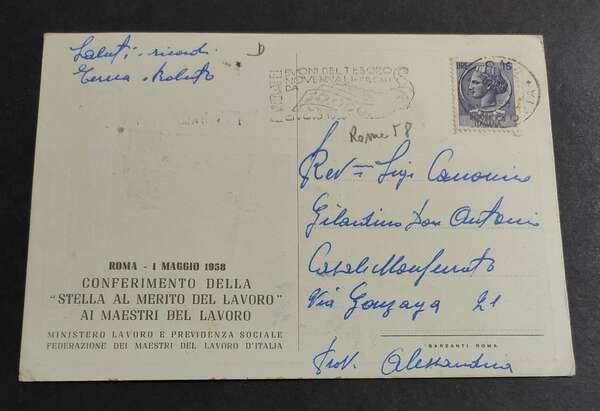 Saluti, ricordi
Teresa Roberto
D
BUONI DEL TESORO
NOVENNALI A PREMI
Roma 58
Rev mo Sigr Canonico
Gilardino Don Antonio
Casale Monferrato
Via Gonzaga 21
Prov. Alessandria
ROMA - 1 MAGGIO 1958
CONFERIMENTO DELLA
"STELLA AL MERITO DEL LAVORO"
AI MAESTRI DEL LAVORO
MINISTERO LAVORO E PREVIDENZA SOCIALE
FEDERAZIONE DEI MAESTRI DEL LAVORO D'ITALIA
GARZANTI. ROMA